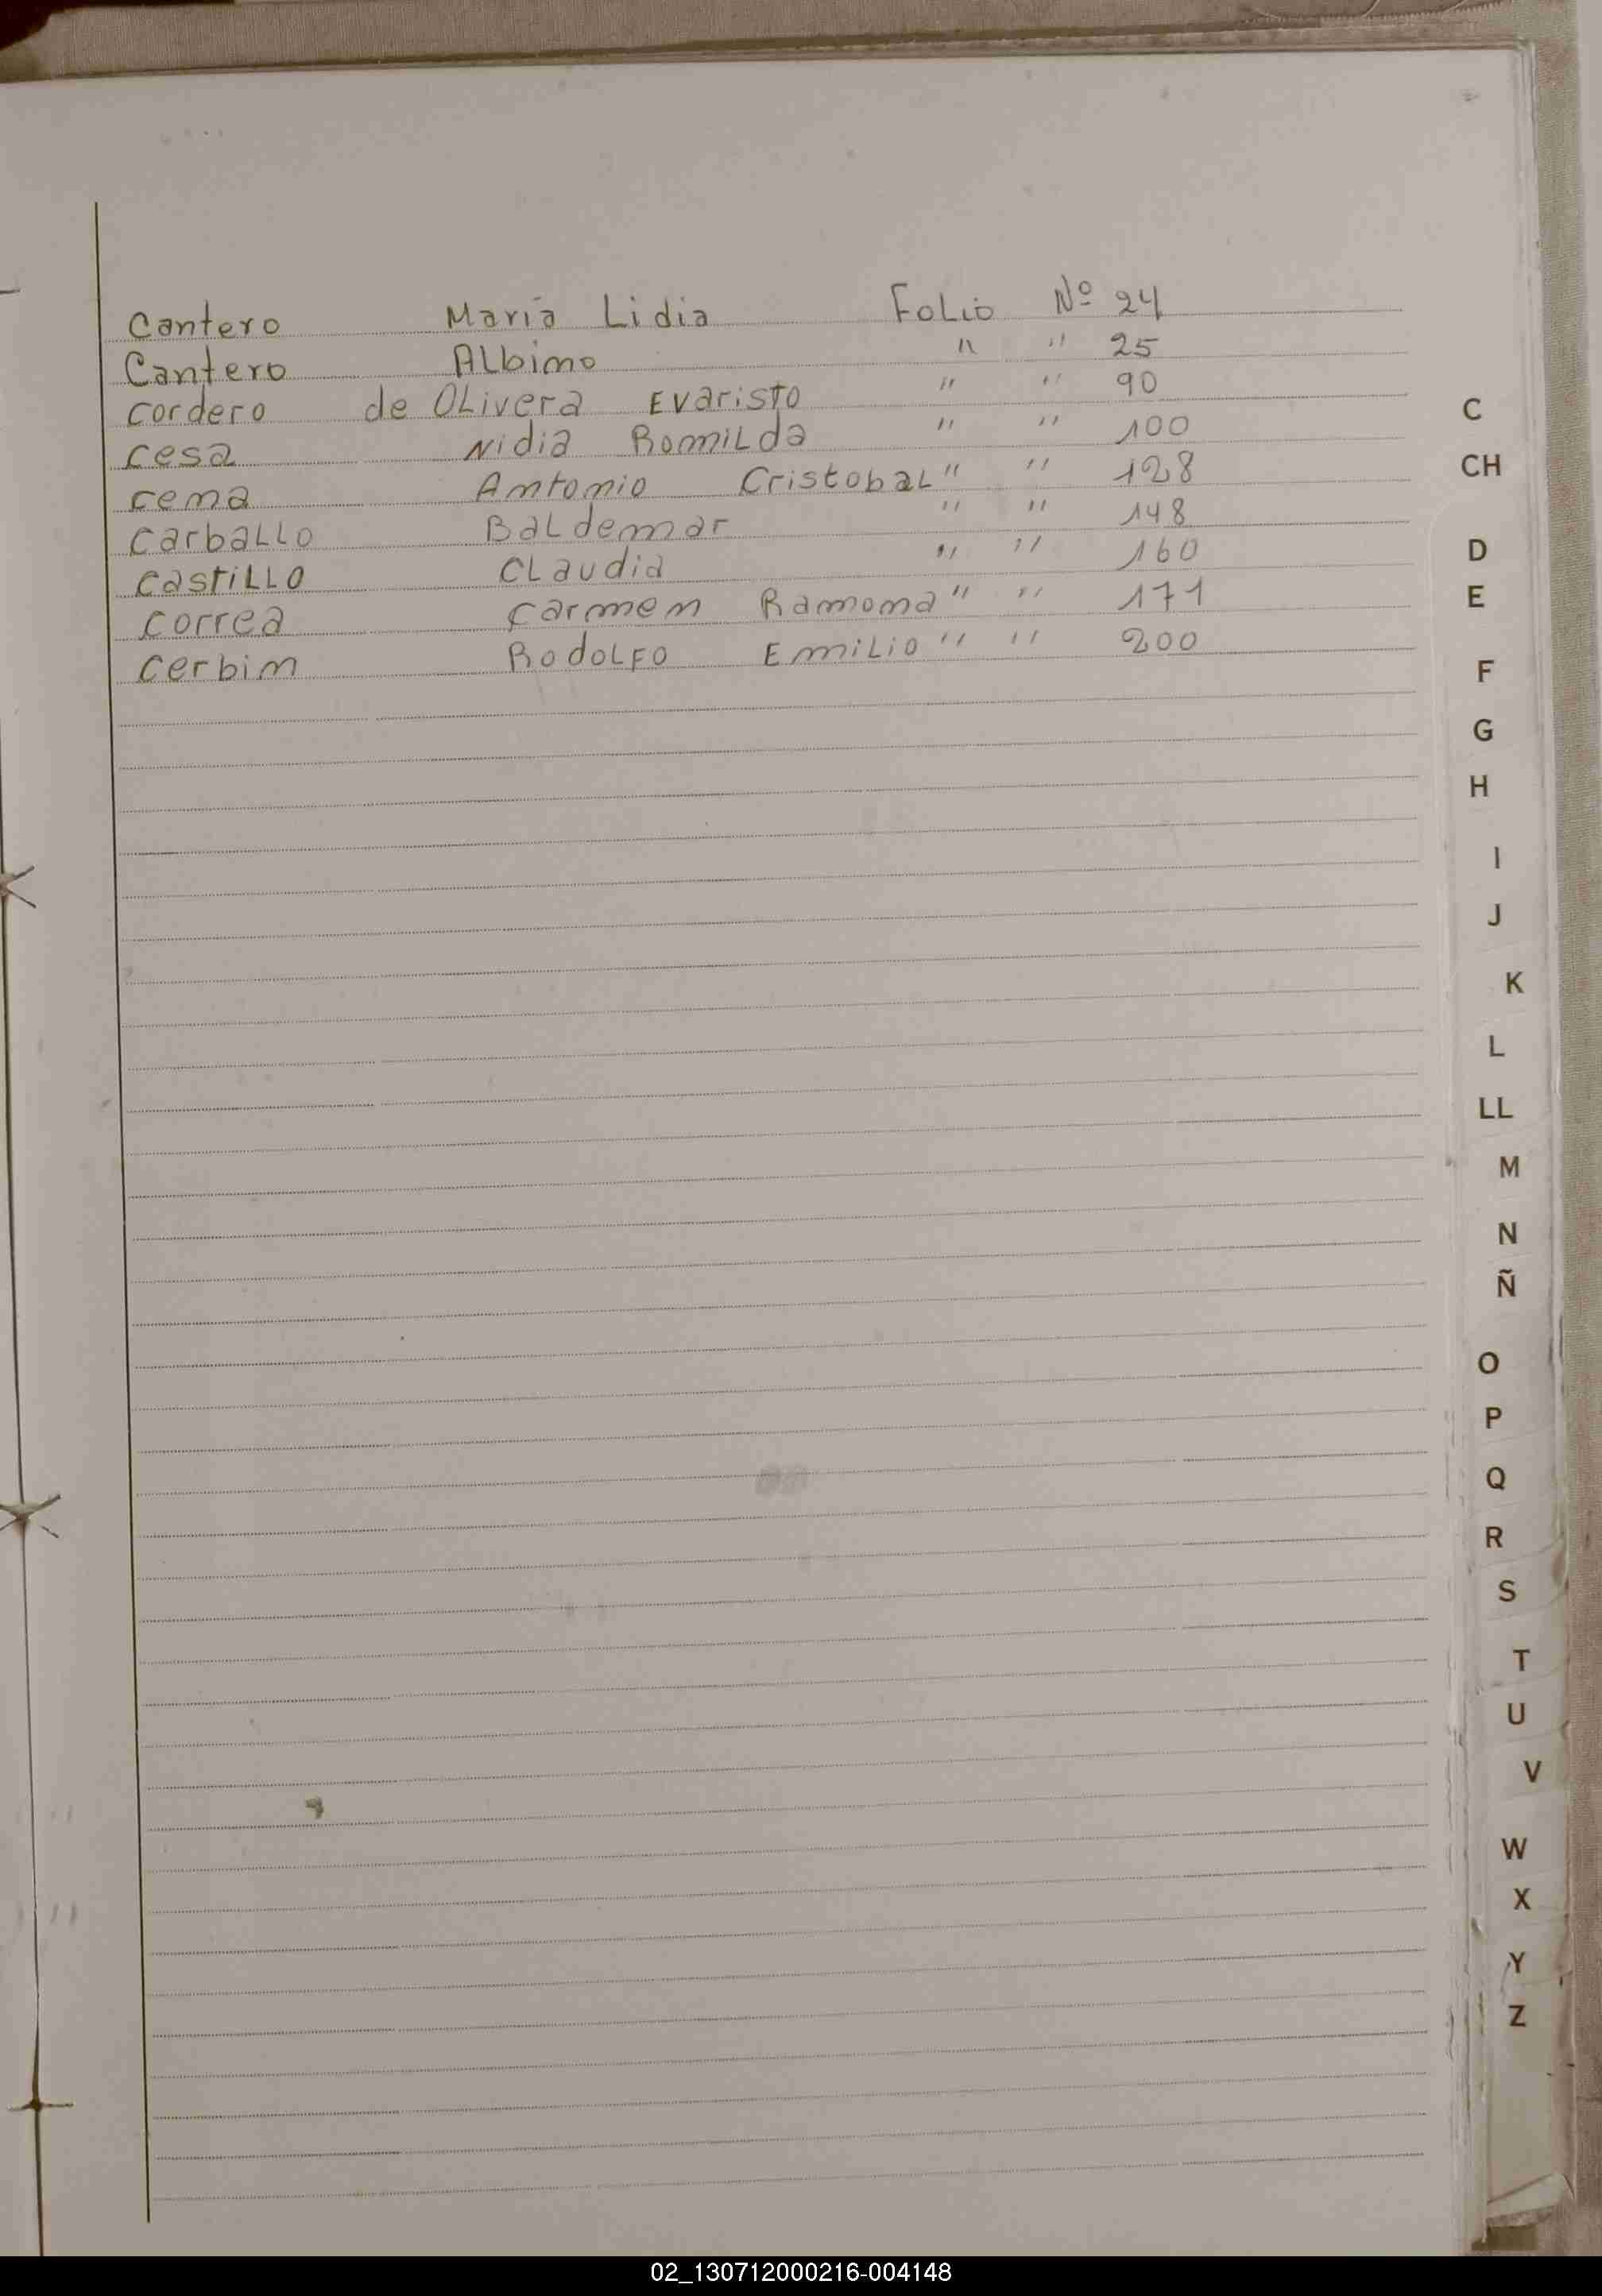 Cantero María Lidia Folio Nº 24
Cantero Albino " " 25
Cordero de Olivera Evaristo " " 90
Cesa Nidia Romilda " " 100
Cena Antonio Cristobal " " 128
Carballo Baldemar " " 148
Castillo Claudia " " 160
Correa Carmen Ramona " " 171
Cerbin Rodolfo Emilio " " 200
C
CH
D
E
F
G
H
I
J
K
L
LL
M
N
Ñ
O
P
Q
R
S
T
U
V
W
X
Y
Z
02_130712000216-004148